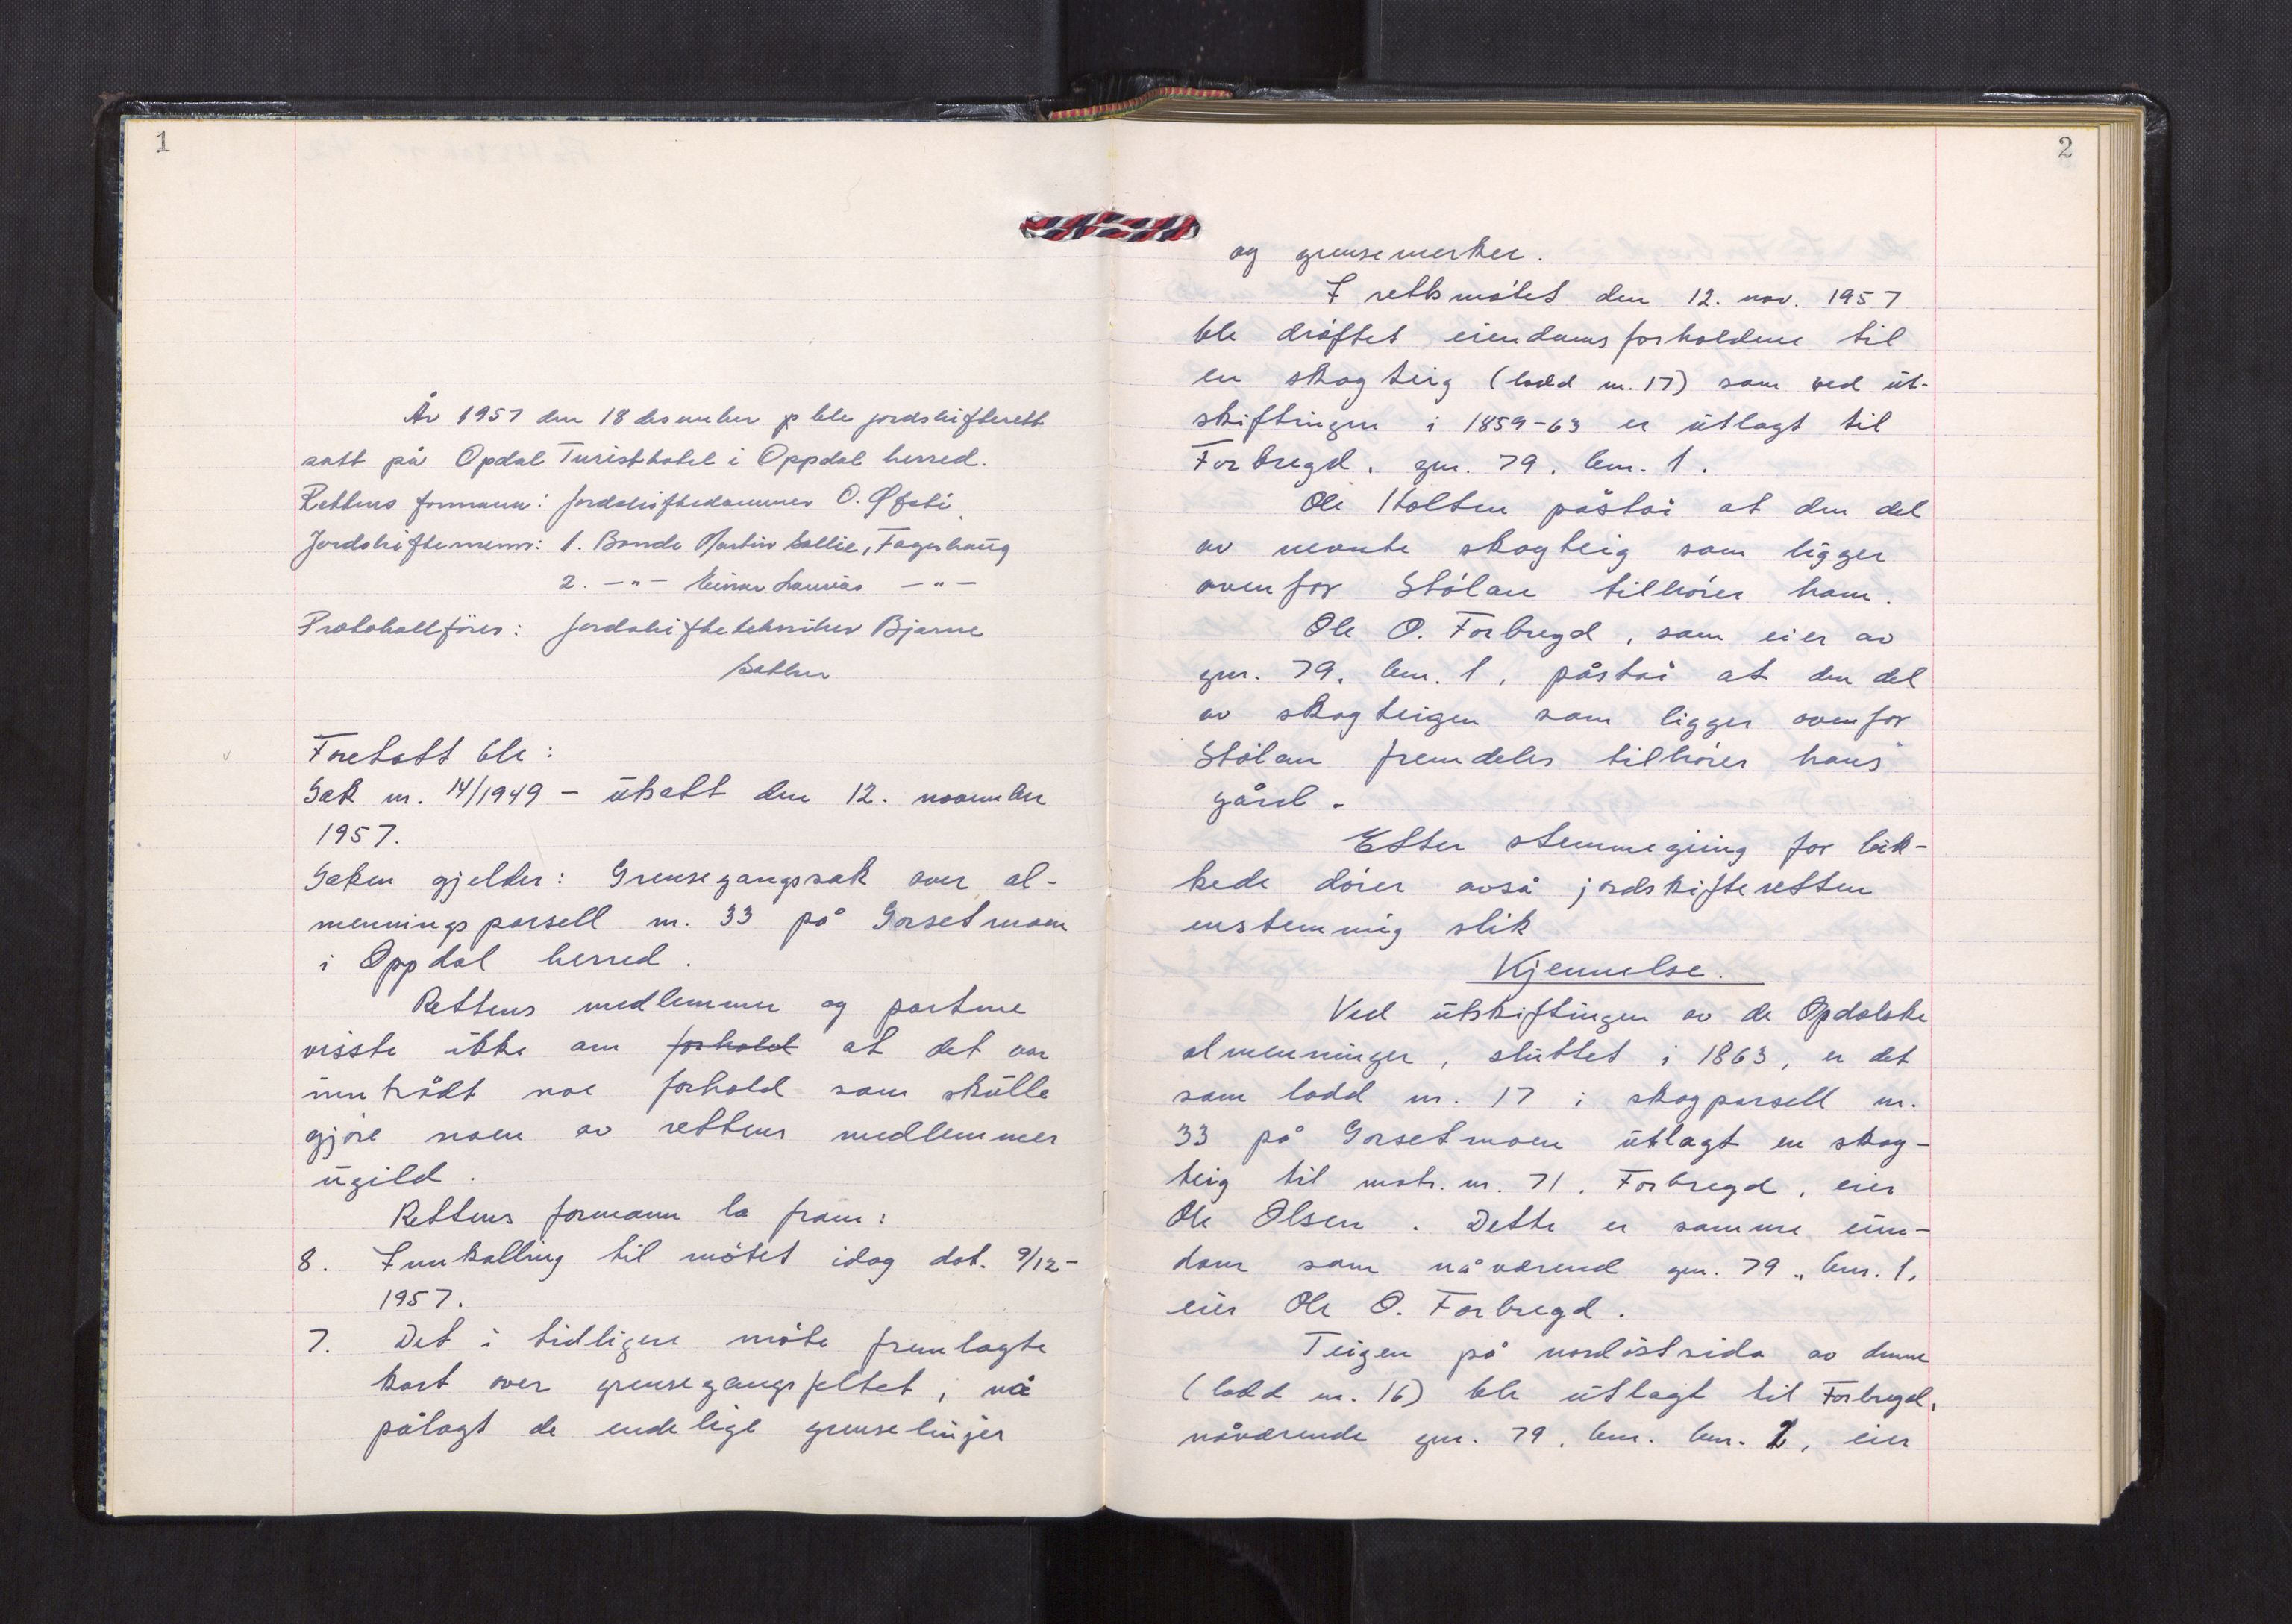 1
År 1957 den 18 desember ble jordskifterett
satt på Opdal Turisthotel i Oppdal herred.
Rettens formann: Jordskiftedommer O. Øfsti
Jordskiftemenn: 1. Bonde Martin Sollie, Fagerhaug
2. —"— Einar Lauvås —"—
Protokollfører: Jordskiftetekniker Bjarne
Sether
Foretatt ble:
Sak nr. 14/1949 – utsatt den 12. november
1957.
Saken gjelder: Grensegangssak over al-
menningsparsell nr. 33 på Gorsetmoen
i Oppdal herred.
Rettens medlemmer og partene
visste ikke om forhold at det var
inntrådt noe forhold som skulle
gjøre noen av rettens medlemmer
ugild.
Rettens formann la fram:
8. Innkalling til møtet idag dat. 9/12-
1957.
7. Det i tidligere møte fremlagte
kart over grensegangsfeltet, nå
pålagt de endelige grenselinjer
2
og grensemerker.
I rettsmøtet den 12. nov. 1957
ble drøftet eiendomsforholdene til
en skogteig (lodd nr. 17) som ved ut-
skiftningen i 1859-63 er utlagt til
Forbregd, gnr. 79, bnr. 1.
Ole Holten påstår at den del
av nevnte skogteig som ligger
ovenfor Stølan tilhører ham.
Ole O. Forbregd, som eier av
gnr. 79, bnr. 1, påstår at den del
av skogteigen som ligger ovenfor
Stølan fremdeles tilhører hans
gård.
Etter stemmegiving for luk-
kede dører avsa jordskifteretten
enstemmig slik
Kjennelse.
Ved utskiftingen av de Opdalske
almenninger, sluttet i 1863, er det
som lodd nr. 17 i skogparsell nr.
33 på Gorsetmoen utlagt en skog-
teig til matr. nr. 71, Forbregd, eier
Ole Olsen. Dette er samme eien-
dom som nåværend gnr. 79, bnr. 1,
eier Ole O. Forbregd.
Teigen på nordøstsida av denne
(lodd nr. 16) ble utlagt til Forbregd,
nåværende gnr. 79, bnr. bnr. 2, eier